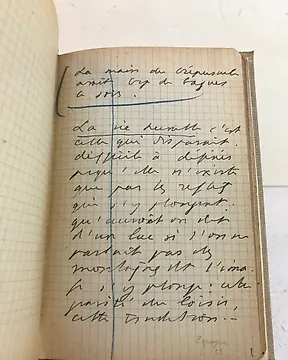 La main du crépuscule
avait trop de bagues
ce soir.
La vie durable c'est
celle qui disparait.
difficile à définir
puisqu'elle n'existe
que par les reflets
qui s'y plongent.
qu'aurait on dit
d'un lac si l'on ne
parlait pas des
montagnes dt l'ima-
ge s'y plonge: elle
du loisir,
cette